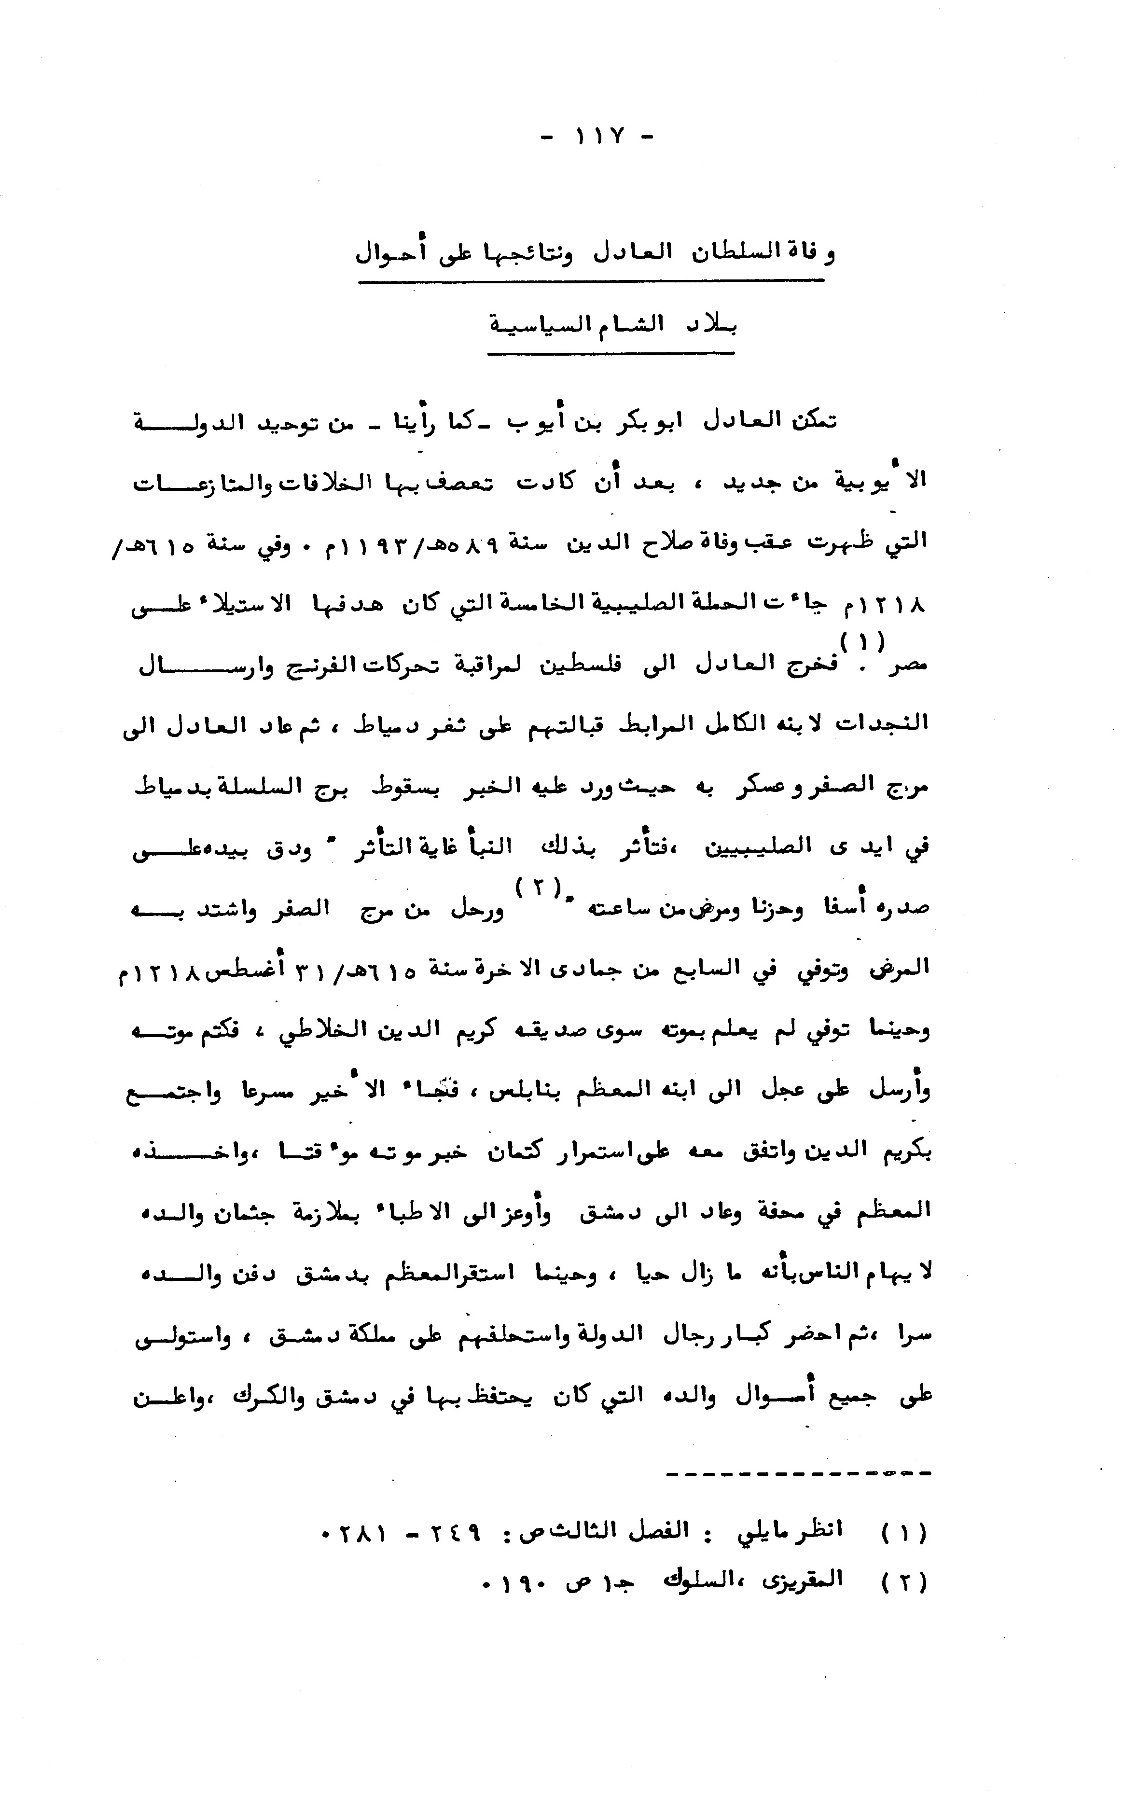 - ١١٧ -
وفاة السلطان العادل ونتائجها على أحوال
بلاد الشام السياسية
تمكن العادل ابو بكر بن أيوب -كما رأينا - من توحيد الدولة
الأيوبية من جديد ، بعد أن كادت تعصف بها الخلافات والمنازعات
التي ظهرت عقب وفاة صلاح الدين سنة ٥٨٩هـ/١١٩٣م . وفي سنة ٦١٥هـ/
١٢١٨م جاءت الحملة الصليبية الخامسة التي كان هدفها الاستيلاء على
مصر (١). فخرج العادل الى فلسطين لمراقبة تحركات الفرنج وارسال
النجدات لابنه الكامل المرابط قبالتهم على ثغر دمياط ، ثم عاد العادل الى
مرج الصفر وعسكر به حيث ورد عليه الخبر بسقوط برج السلسلة بدمياط
في ايدى الصليبيين ،فتأثر بذلك النبأ غاية التأثر " ودق بيده على
صدره أسفا وحزنا ومرض من ساعته "(٢) ورحل من مرج الصفر واشتد به
المرض وتوفي في السابع من جمادى الاخرة سنة ٦١٥هـ/٣١ أغسطس ١٢١٨م
وحينما توفي لم يعلم بموته سوى صديقه كريم الدين الخلاطي ، فكتم موته
وأرسل على عجل الى ابنه المعظم بنابلس ، فجاء الأخير مسرعا واجتمع
بكريم الدين واتفق معه على استمرار كتمان خبر موته موءقتا ،واخذه
المعظم في محفة وعاد الى دمشق وأوعز الى الاطباء بملازمة جثمان والده
لايهام الناس بأنه ما زال حيا ، وحينما استقر المعظم بدمشق دفن والده
سرا ،ثم احضر كبار رجال الدولة واستحلفهم على مملكة دمشق ، واستولى
على جميع أموال والده التي كان يحتفظ بها في دمشق والكرك ،واعلن
(١) انظر مايلي : الفصل الثالث ص : ٢٤٩ - ٢٨١ .
(٢) المقريزى ،السلوك جـ١ ص ١٩٠ .